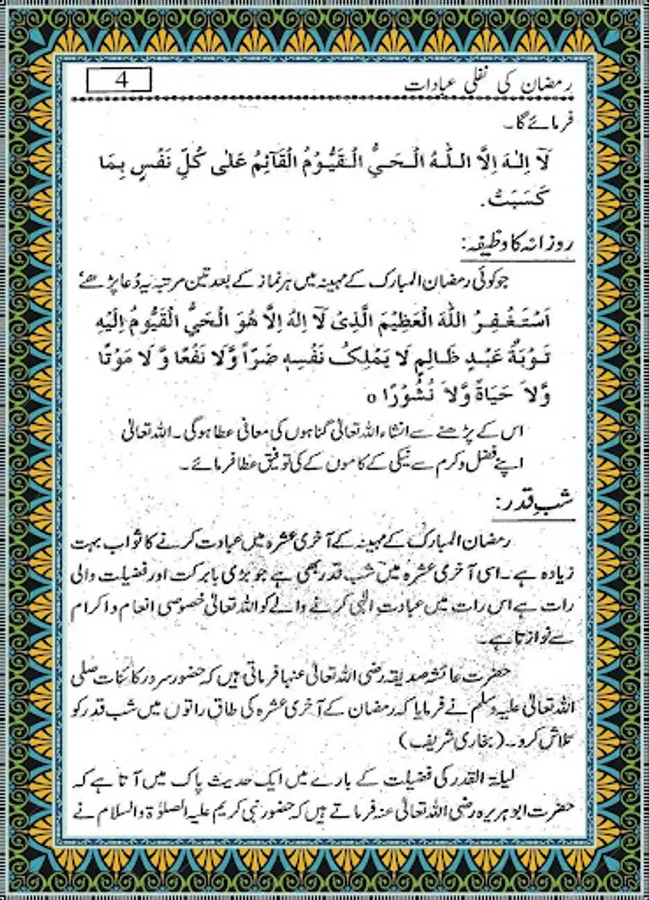 رمضان کی نفلی عبادات
4
فرمائے گا۔
لَآ اِلٰهَ اِلَّا اللّٰهُ الْحَيُّ الْقَيُّوْمُ الْقَآئِمُ عَلٰى كُلِّ نَفْسٍ بِمَا
كَسَبَتْ.
روزانہ کا وظیفہ:
جو کوئی رمضان المبارک کے مہینہ میں ہر نماز کے بعد تین مرتبہ یہ دُعا پڑھئے
اَسْتَغْفِرُ اللّٰهَ الْعَظِيْمَ الَّذِىْ لَا اِلٰهَ اِلَّا هُوَ الْحَيُّ الْقَيُّوْمُ اِلَيْهِ
تَوْبَةُ عَبْدٍ ظَالِمٍ لَا يَمْلِكُ نَفْسِهٖ ضَرًّا وَّلَا نَفْعًا وَّ لَا مَوْتًا
وَّلَا حَيَاةً وَّلَا نُشُوْرًا ٥
اس کے پڑھنے سے انشاء اللہ تعالیٰ گناہوں کی معافی عطا ہوگی۔ اللہ تعالیٰ
اپنے فضل و کرم سے نیکی کے کاموں کے کی توفیق عطا فرمائے۔
شبِ قدر:
رمضان المبارک کے مہینہ کے آخری عشرہ میں عبادت کرنے کا ثواب بہت
زیادہ ہے۔ اسی آخری عشرہ میں شب قدر بھی ہے جو بڑی بابرکت اور فضیلت والی
رات ہے اس رات میں عبادتِ الٰہی کرنے والے کو اللہ تعالیٰ خصوصی انعام و اکرام
سے نوازتا ہے۔
حضرت عائشہ صدیقہ رضی اللہ تعالیٰ عنہا فرماتی ہیں کہ حضور سرور کائنات صلی
اللہ تعالیٰ علیہ وسلم نے فرمایا کہ رمضان کے آخری عشرہ کی طاق راتوں میں شب قدر کو
تلاش کرو۔ (بخاری شریف)
لیلۃ القدر کی فضیلت کے بارے میں ایک حدیث پاک میں آتا ہے کہ
حضرت ابوہریرہ رضی اللہ تعالیٰ عنہ فرماتے ہیں کہ حضور نبی کریم علیہ الصلوٰۃ والسلام نے